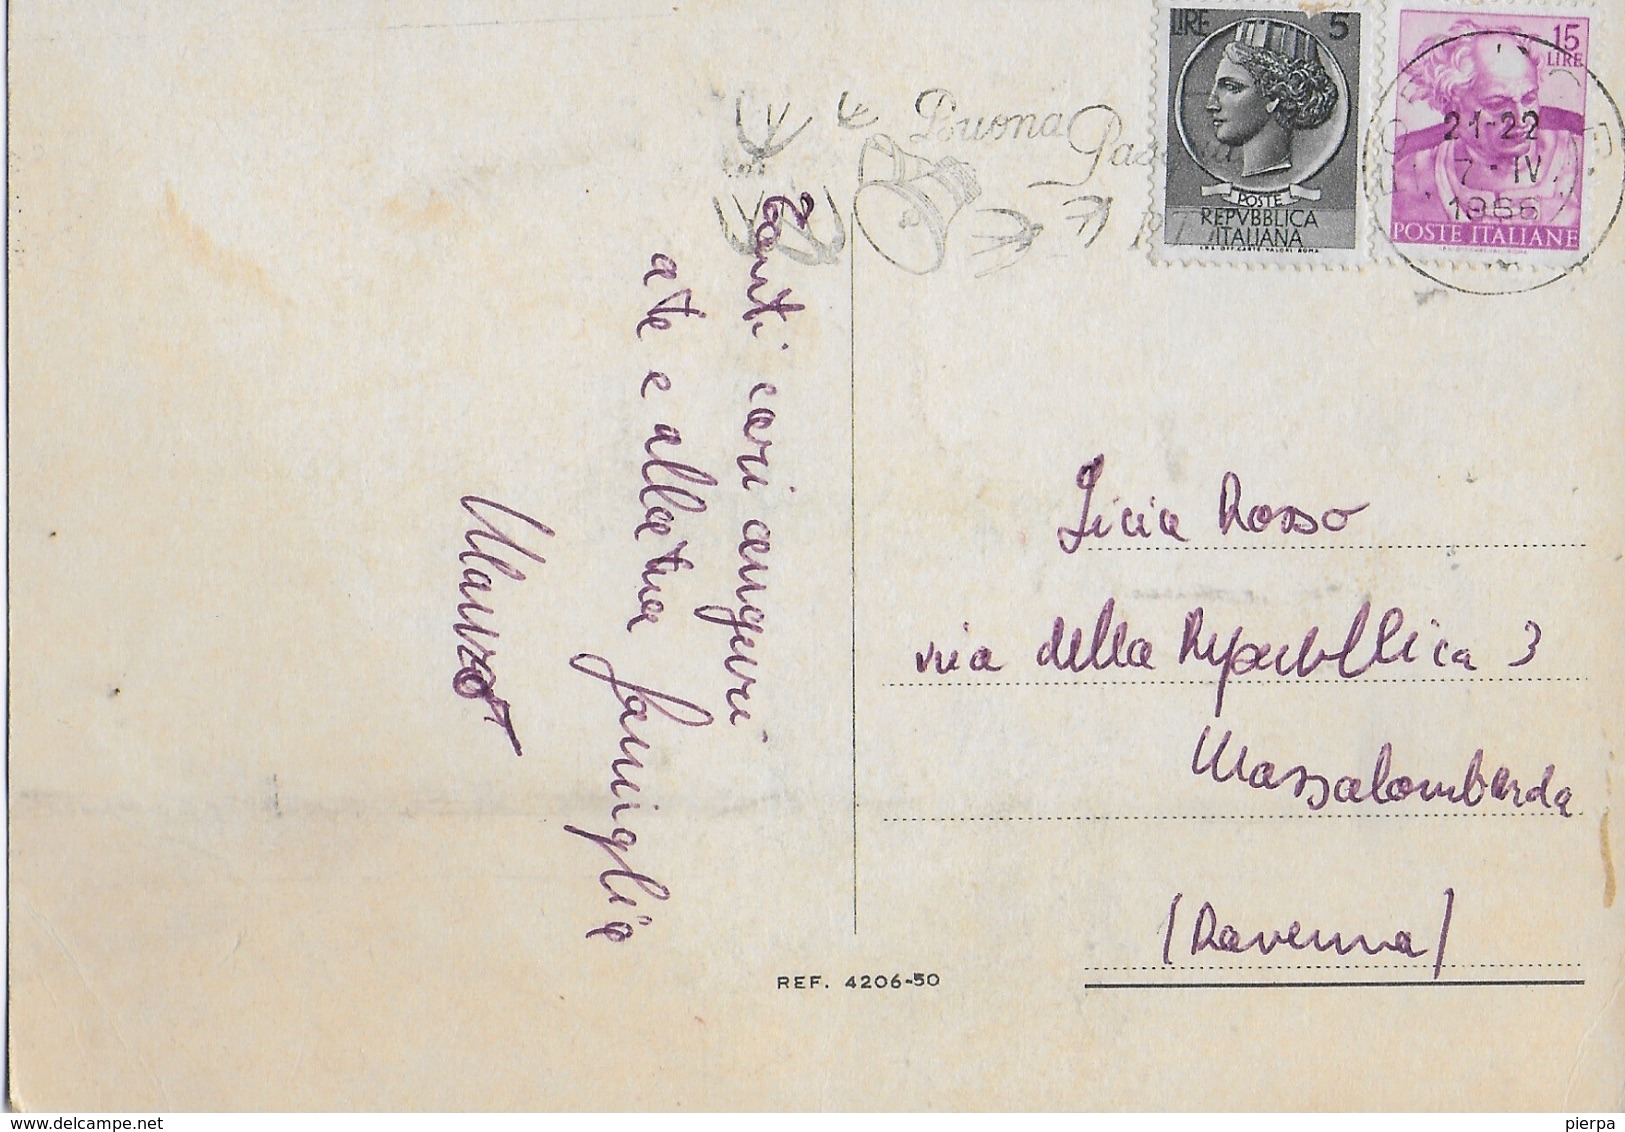 LIRE 5
POSTE
REPVBBLICA
ITALIANA
15
LIRE
POSTE ITALIANE
Buona
Pasqua
21-22
7-IV
1966
Tanti cari auguri
a te e alla tua famiglia
Licia Rosso
via della Repubblica 3
Massalombarda
(Ravenna)
REF. 4206-50
pierpa
www.delcampe.net